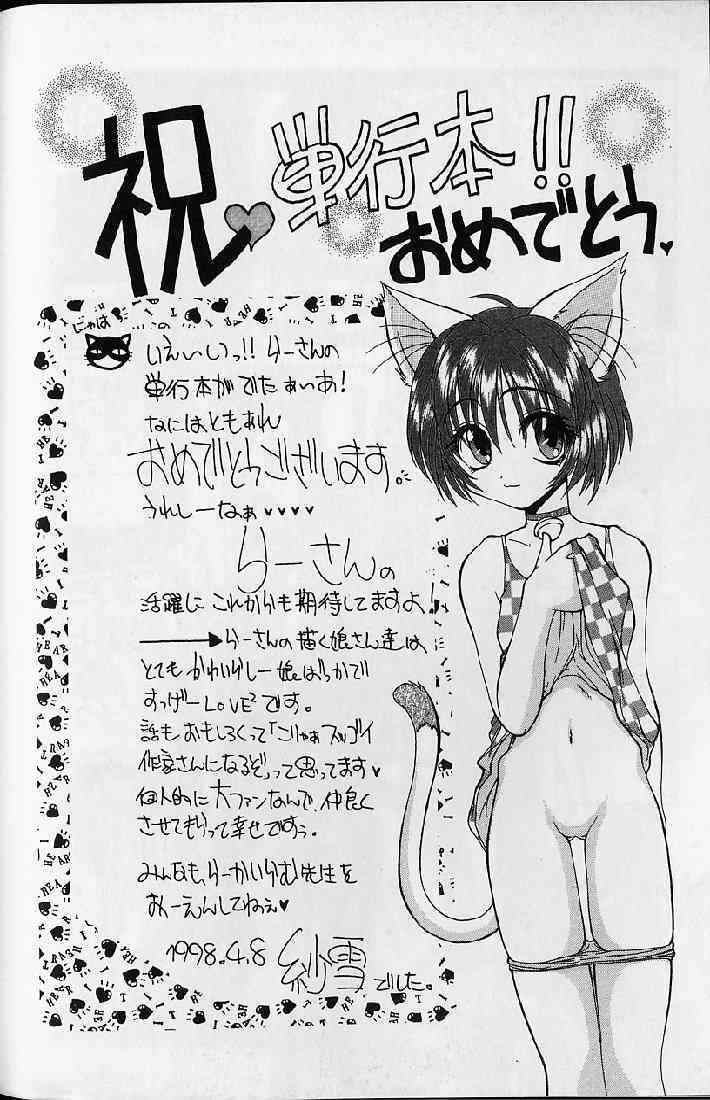 祝♥単行本!!
おめでとう♥
にゃは
いえぃいっ!! らーさんの
単行本がでたぁぃあ!
なにはともあれ
おめでとうございます。
うれしーなぁ♥♥♥♥
らーさんの
活躍に これからも期待してますよ!
らーさんの描く娘さん達は、
とてもかわいらしー娘ばっかで
すっげーLOVE²です。
話もおもしろくって「こりゃぁスッゴイ
作家さんになるぞ」って思ってます♥
個人的に大ファンなんで、仲良く
させてもらって幸せですぅ。
みんなも、らーかいらむ先生を
おーえんしてねぇ♥
1998.4.8 紗雪でした。